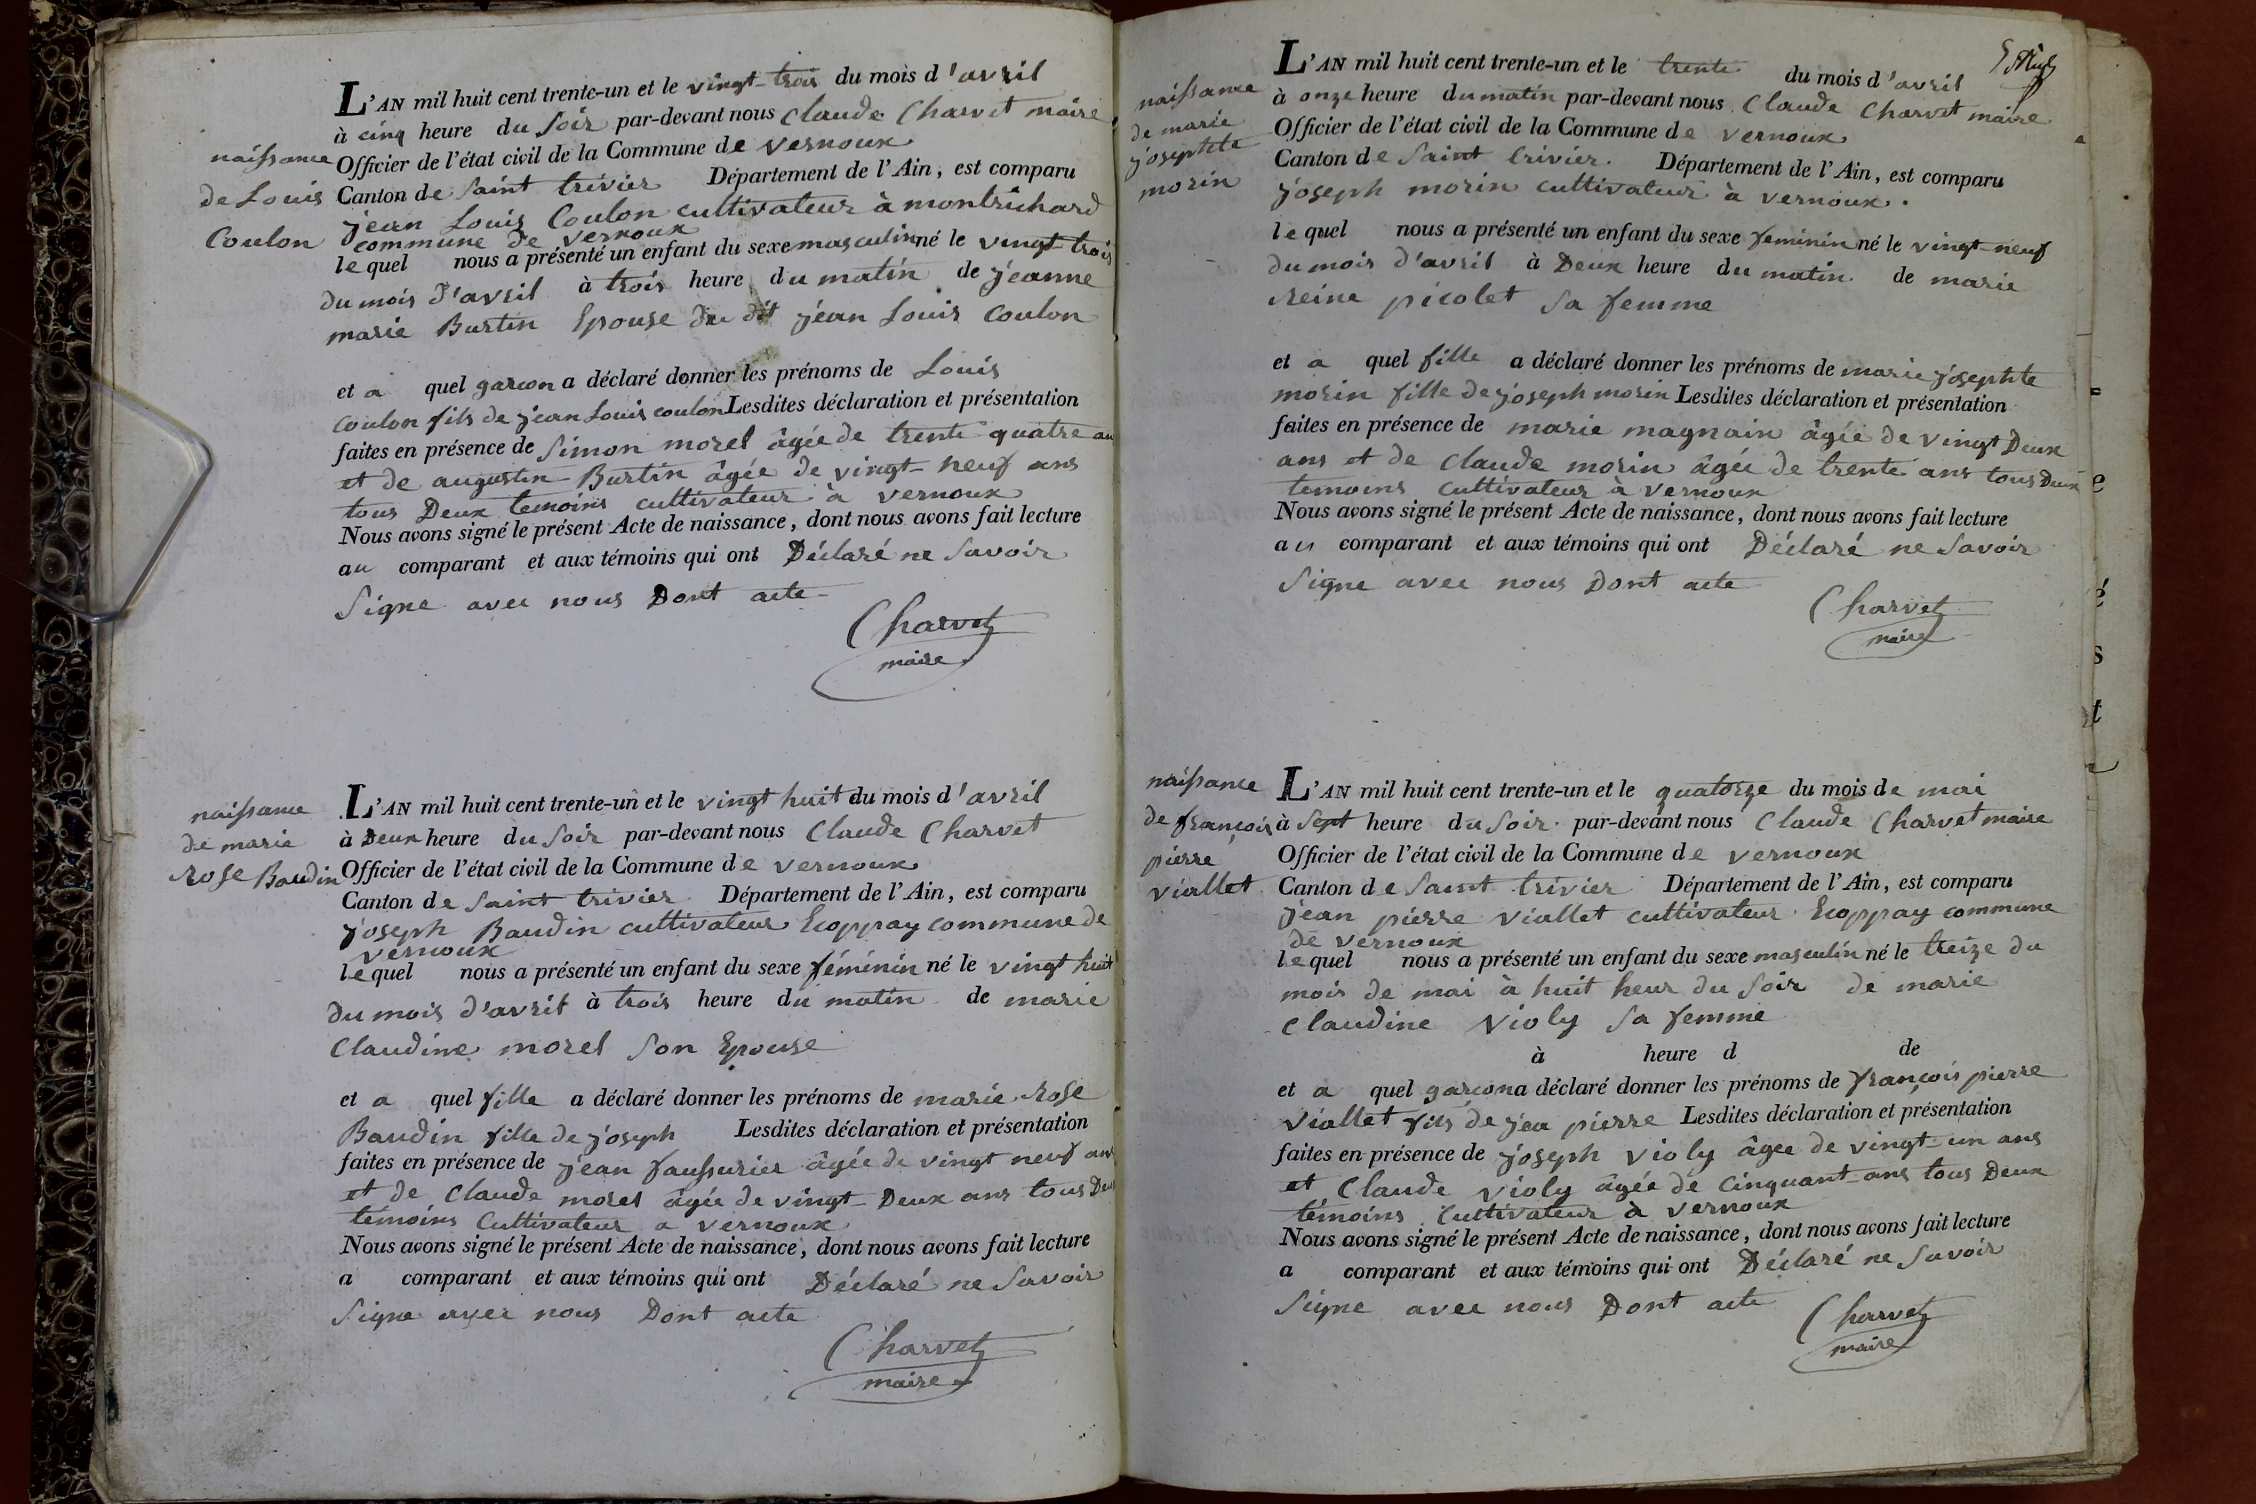 naissance
de Louis
Coulon
L'AN mil huit cent trente-un et le vingt-trois du mois d'avril
à cinq heure du soir par-devant nous Claude Charvet maire
Officier de l'état civil de la Commune de vernoux
Canton de Saint trivier Département de l'Ain, est comparu
jean Louis Coulon cultivateur à montrichard
commune de vernoux
lequel nous a présenté un enfant du sexe masculin né le vingt trois
du mois d'avril à trois heure du matin de jeanne
marie Burtin Epouse du dit jean Louis Coulon
et a quel garcon a déclaré donner les prénoms de Louis
Coulon fils de jean Louis coulon Lesdites déclaration et présentation
faites en présence de Simon morel âgée de trente quatre an
et de augustin Burtin âgée de vingt-neuf ans
tous Deux temoins cultivateur à vernoux
Nous avons signé le présent Acte de naissance, dont nous avons fait lecture
au comparant et aux témoins qui ont Déclaré ne Savoir
Signe avec nous Dont acte
Charvet
maire
naissance
de marie
Rose Baudin
L'AN mil huit cent trente-un et le vingt huit du mois d'avril
à Deux heure du Soir par-devant nous Claude Charvet
Officier de l'état civil de la Commune de vernoux
Canton de Saint trivier Département de l'Ain, est comparu
joseph Baudin cultivateur Ecoppay commune de
vernoux
lequel nous a présenté un enfant du sexe féminin né le vingt huit
du mois d'avril à trois heure du matin de marie
Claudine morel Son Epouse
et a quel fille a déclaré donner les prénoms de marie Rose
Baudin fille de joseph Lesdites déclaration et présentation
faites en présence de jean faussurier âgée de vingt neuf ans
et de Claude morel âgée de vingt-Deux ans tous Deux
témoins Cultivateur a vernoux
Nous avons signé le présent Acte de naissance, dont nous avons fait lecture
a comparant et aux témoins qui ont Déclaré ne Savoir
Signe avec nous Dont acte
Charvet
maire
naissance
de marie
josephte
morin
L'AN mil huit cent trente-un et le trente du mois d'avril
à onze heure du matin par-devant nous Claude Charvet maire
Officier de l'état civil de la Commune de vernoux
Canton de Saint trivier. Département de l'Ain, est comparu
joseph morin cultivateur à vernoux.
lequel nous a présenté un enfant du sexe feminin né le vingt-neuf
du mois d'avril à Deux heure du matin de marie
Reine picolet Sa femme
et a quel fille a déclaré donner les prénoms de marie josephte
morin fille de joseph morin Lesdites déclaration et présentation
faites en présence de marie magnain âgée de vingt Deux
ans et de Claude morin âgée de trente ans tous Deux
temoins cultivateur à vernoux
Nous avons signé le présent Acte de naissance, dont nous avons fait lecture
au comparant et aux témoins qui ont Déclaré ne Savoir
Signe avec nous Dont acte
Charvet
maire
naissance
de françois
pierre
viallet
L'AN mil huit cent trente-un et le quatorze du mois de mai
à Sept heure du Soir par-devant nous Claude Charvet maire
Officier de l'état civil de la Commune de vernoux
Canton de Saint trivier Département de l'Ain, est comparu
jean pierre viallet cultivateur Ecoppay commune
de vernoux
lequel nous a présenté un enfant du sexe masculin né le treize du
mois de mai à huit heur du Soir de marie
Claudine violy Sa femme
à heure d de
et a quel garcon a déclaré donner les prénoms de françois pierre
viallet fils de jea pierre Lesdites déclaration et présentation
faites en présence de joseph violy âgee de vingt-un ans
et Claude violy âgée de Cinquant-ans tous Deux
témoins Cultivateur à vernoux
Nous avons signé le présent Acte de naissance, dont nous avons fait lecture
a comparant et aux témoins qui ont Déclaré ne Savoir
Signe avec nous Dont acte
Charvet
maire